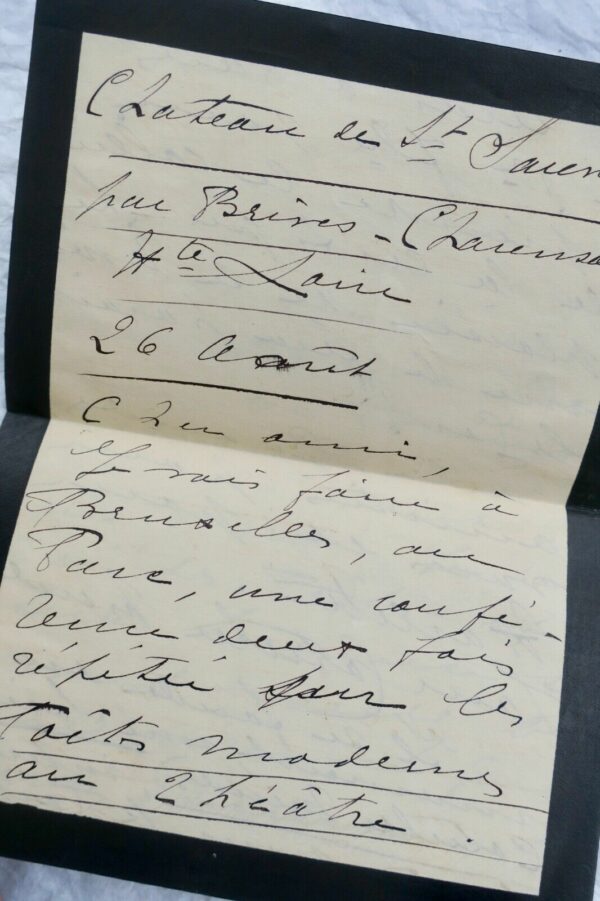 Château de St Saren
par Brives - Charensa
Hte Loire
26 Août
Cher ami,
Je vais faire à
Bruxelles, au
Parc, une confé-
rence deux fois
répétée sur les
Poètes modernes
au Théâtre.